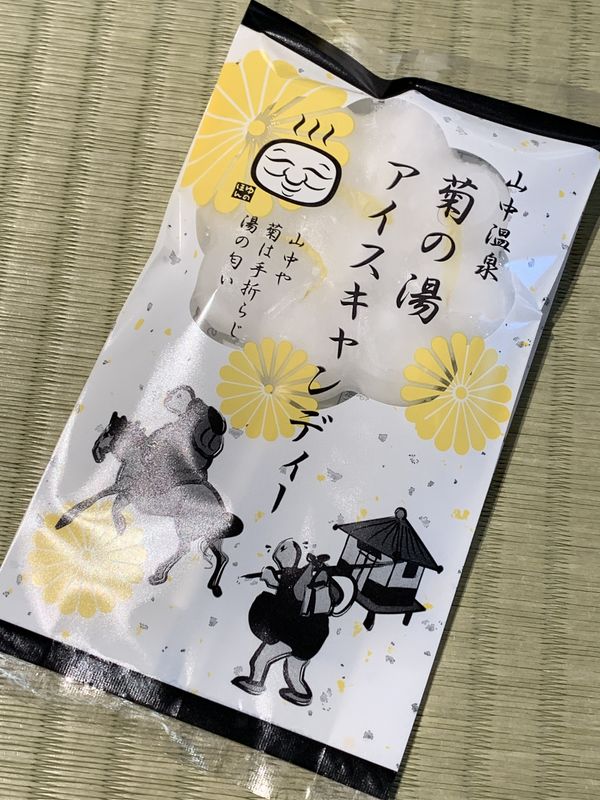 山中温泉
菊の湯
アイスキャンディー
ゆの
ほん
山中や
菊は手折らじ
湯の匂い